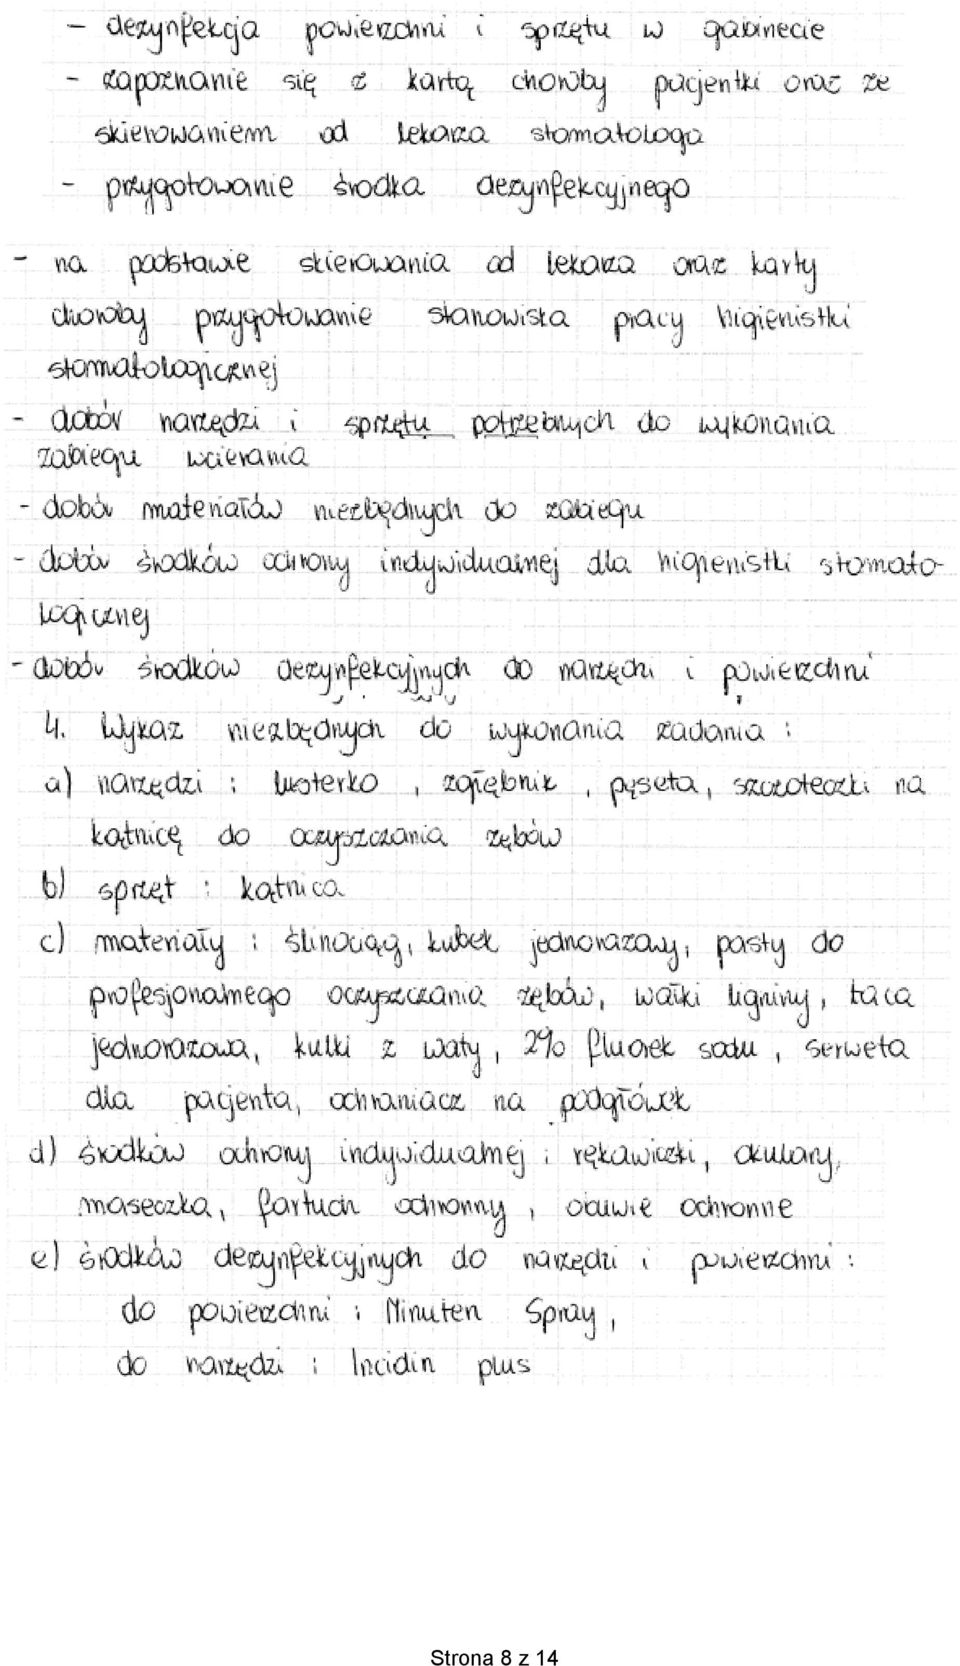 - dezynfekcja powierzchni i sprzętu w gabinecie
- zapoznanie się z kartą choroby pacjentki oraz ze
skierowaniem od lekarza stomatologa
- przygotowanie środka dezynfekcyjnego
- na podstawie skierowania od lekarza oraz karty
choroby przygotowanie stanowiska pracy higienistki
stomatologicznej
- dobór narzędzi i sprzętu potrzebnych do wykonania
zabiegu wcierania
- dobór materiałów niezbędnych do zabiegu
- dobór środków ochrony indywidualnej dla higienistki stomato-
logicznej
- dobór środków dezynfekcyjnych do narzędzi i powierzchni
4. Wykaz niezbędnych do wykonania zadania :
a) narzędzi : lusterko , zgłębnik , pęseta, szczoteczki na
kątnicę do oczyszczania zębów
b) sprzęt : kątnica
c) materiały : ślinociąg, kubek jednorazowy, pasty do
profesjonalnego oczyszczania zębów, wałki ligniny, taca
jednorazowa, kulki z waty, 2% fluorek sodu , serweta
dla pacjenta, ochraniacz na podgłówek
d) środków ochrony indywidualnej : rękawiczki, okulary,
maseczka, fartuch ochronny , obuwie ochronne
e) środków dezynfekcyjnych do narzędzi i powierzchni :
do powierzchni : Minuten Spray,
do narzędzi : Incidin plus
Strona 8 z 14